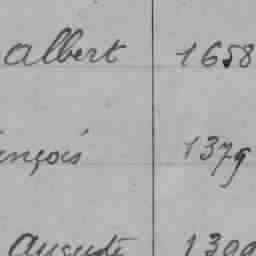 albert 1658
ençois 1379
auguste 1300